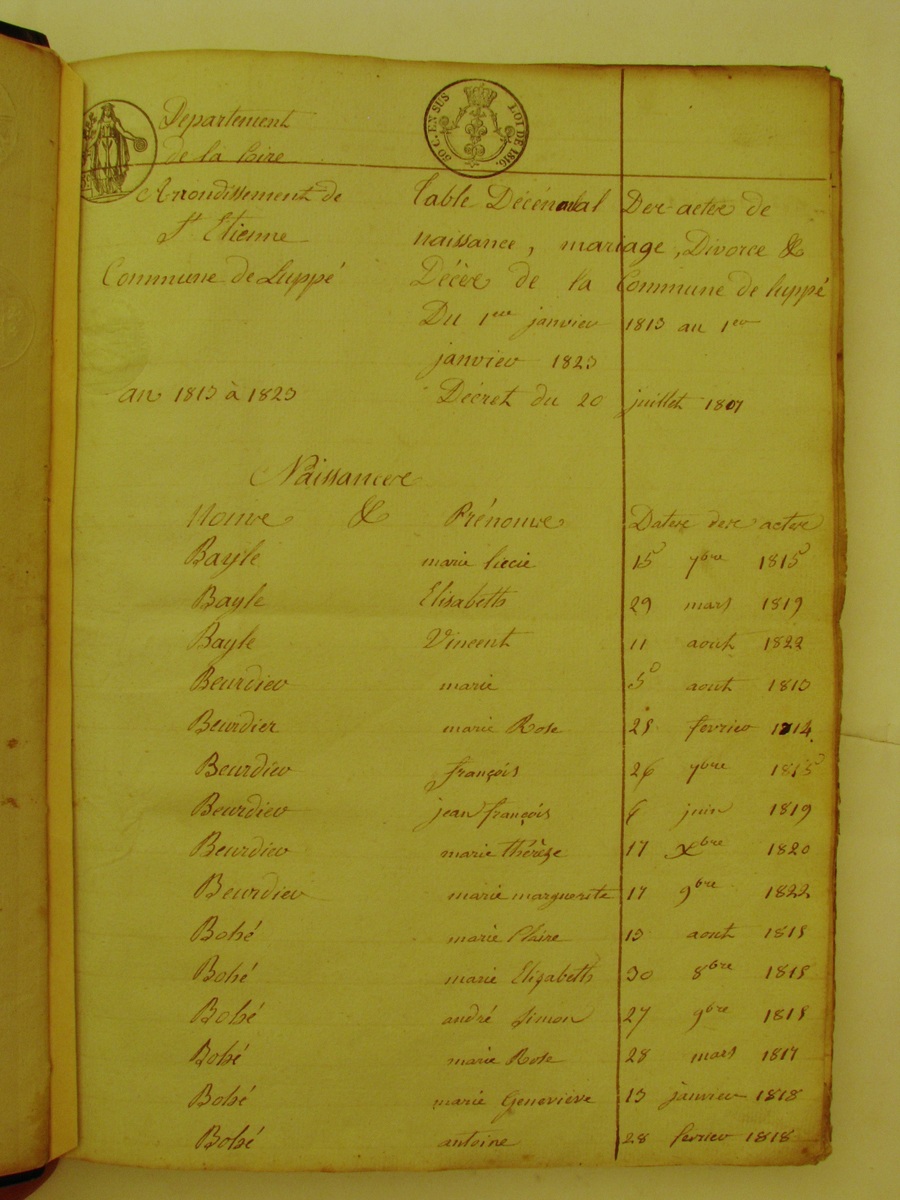 Departement
de la loire
50 C. EN SUS LOI DE 1816.
Arrondissement de
St Etienne
Commune de Luppé
Table Décénal Des actes de
naissance, mariage, Divorce &
Décès de la Commune de luppé
Du 1er janvier 1813 au 1er
janvier 1823
an 1813 à 1823
Décret du 20 juillet 1807
Naissances
Noms & Prénoms Dates des actes
Bayle marie lucie 15 7bre 1815
Bayle Elisabeth 29 mars 1819
Bayle Vincent 11 août 1822
Beurdier marie 5 août 1813
Beurdier marie Rose 25 fevrier 1814
Beurdier françois 26 7bre 1815
Beurdier jean françois 6 juin 1819
Beurdier marie thérèze 17 Xbre 1820
Beurdier marie marguerite 17 9bre 1822
Bohé marie Claire 13 août 1815
Bohé marie Elizabeth 30 8bre 1815
Bohé andré Simon 27 9bre 1815
Bohé marie Rose 28 mars 1817
Bohé marie Genevieve 13 janvier 1818
Bohé antoine 28 fevrier 1818